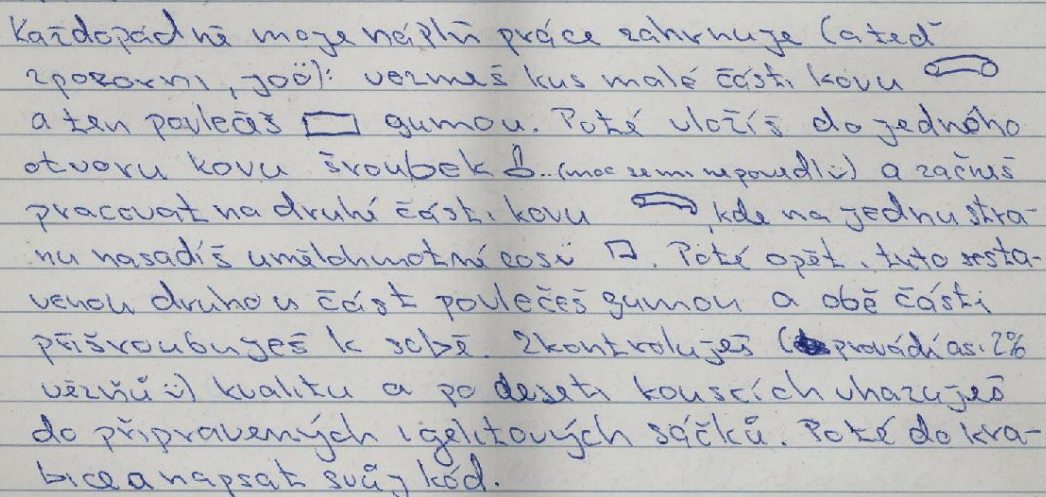 Každopádně moje náplň práce zahrnuje (a teď
zpozorni, joo): vezmeš kus malé části kovu
a ten povlečeš gumou. Poté vložíš do jednoho
otvoru kovu šroubek .. (moc se mi nepovedl :)) a začneš
pracovat na druhé části kovu, kde na jednu stra-
nu nasadíš umělohmotné cosi. Poté opět tuto sesta-
venou druhou část povlečeš gumou a obě části
přišroubuješ k sobě. Zkontroluješ (provádí asi 2%
vězňů :)) kvalitu a po deseti kouscích vhazuješ
do připravených igelitových sáčků. Poté do kra-
bice a napsat svůj kód.